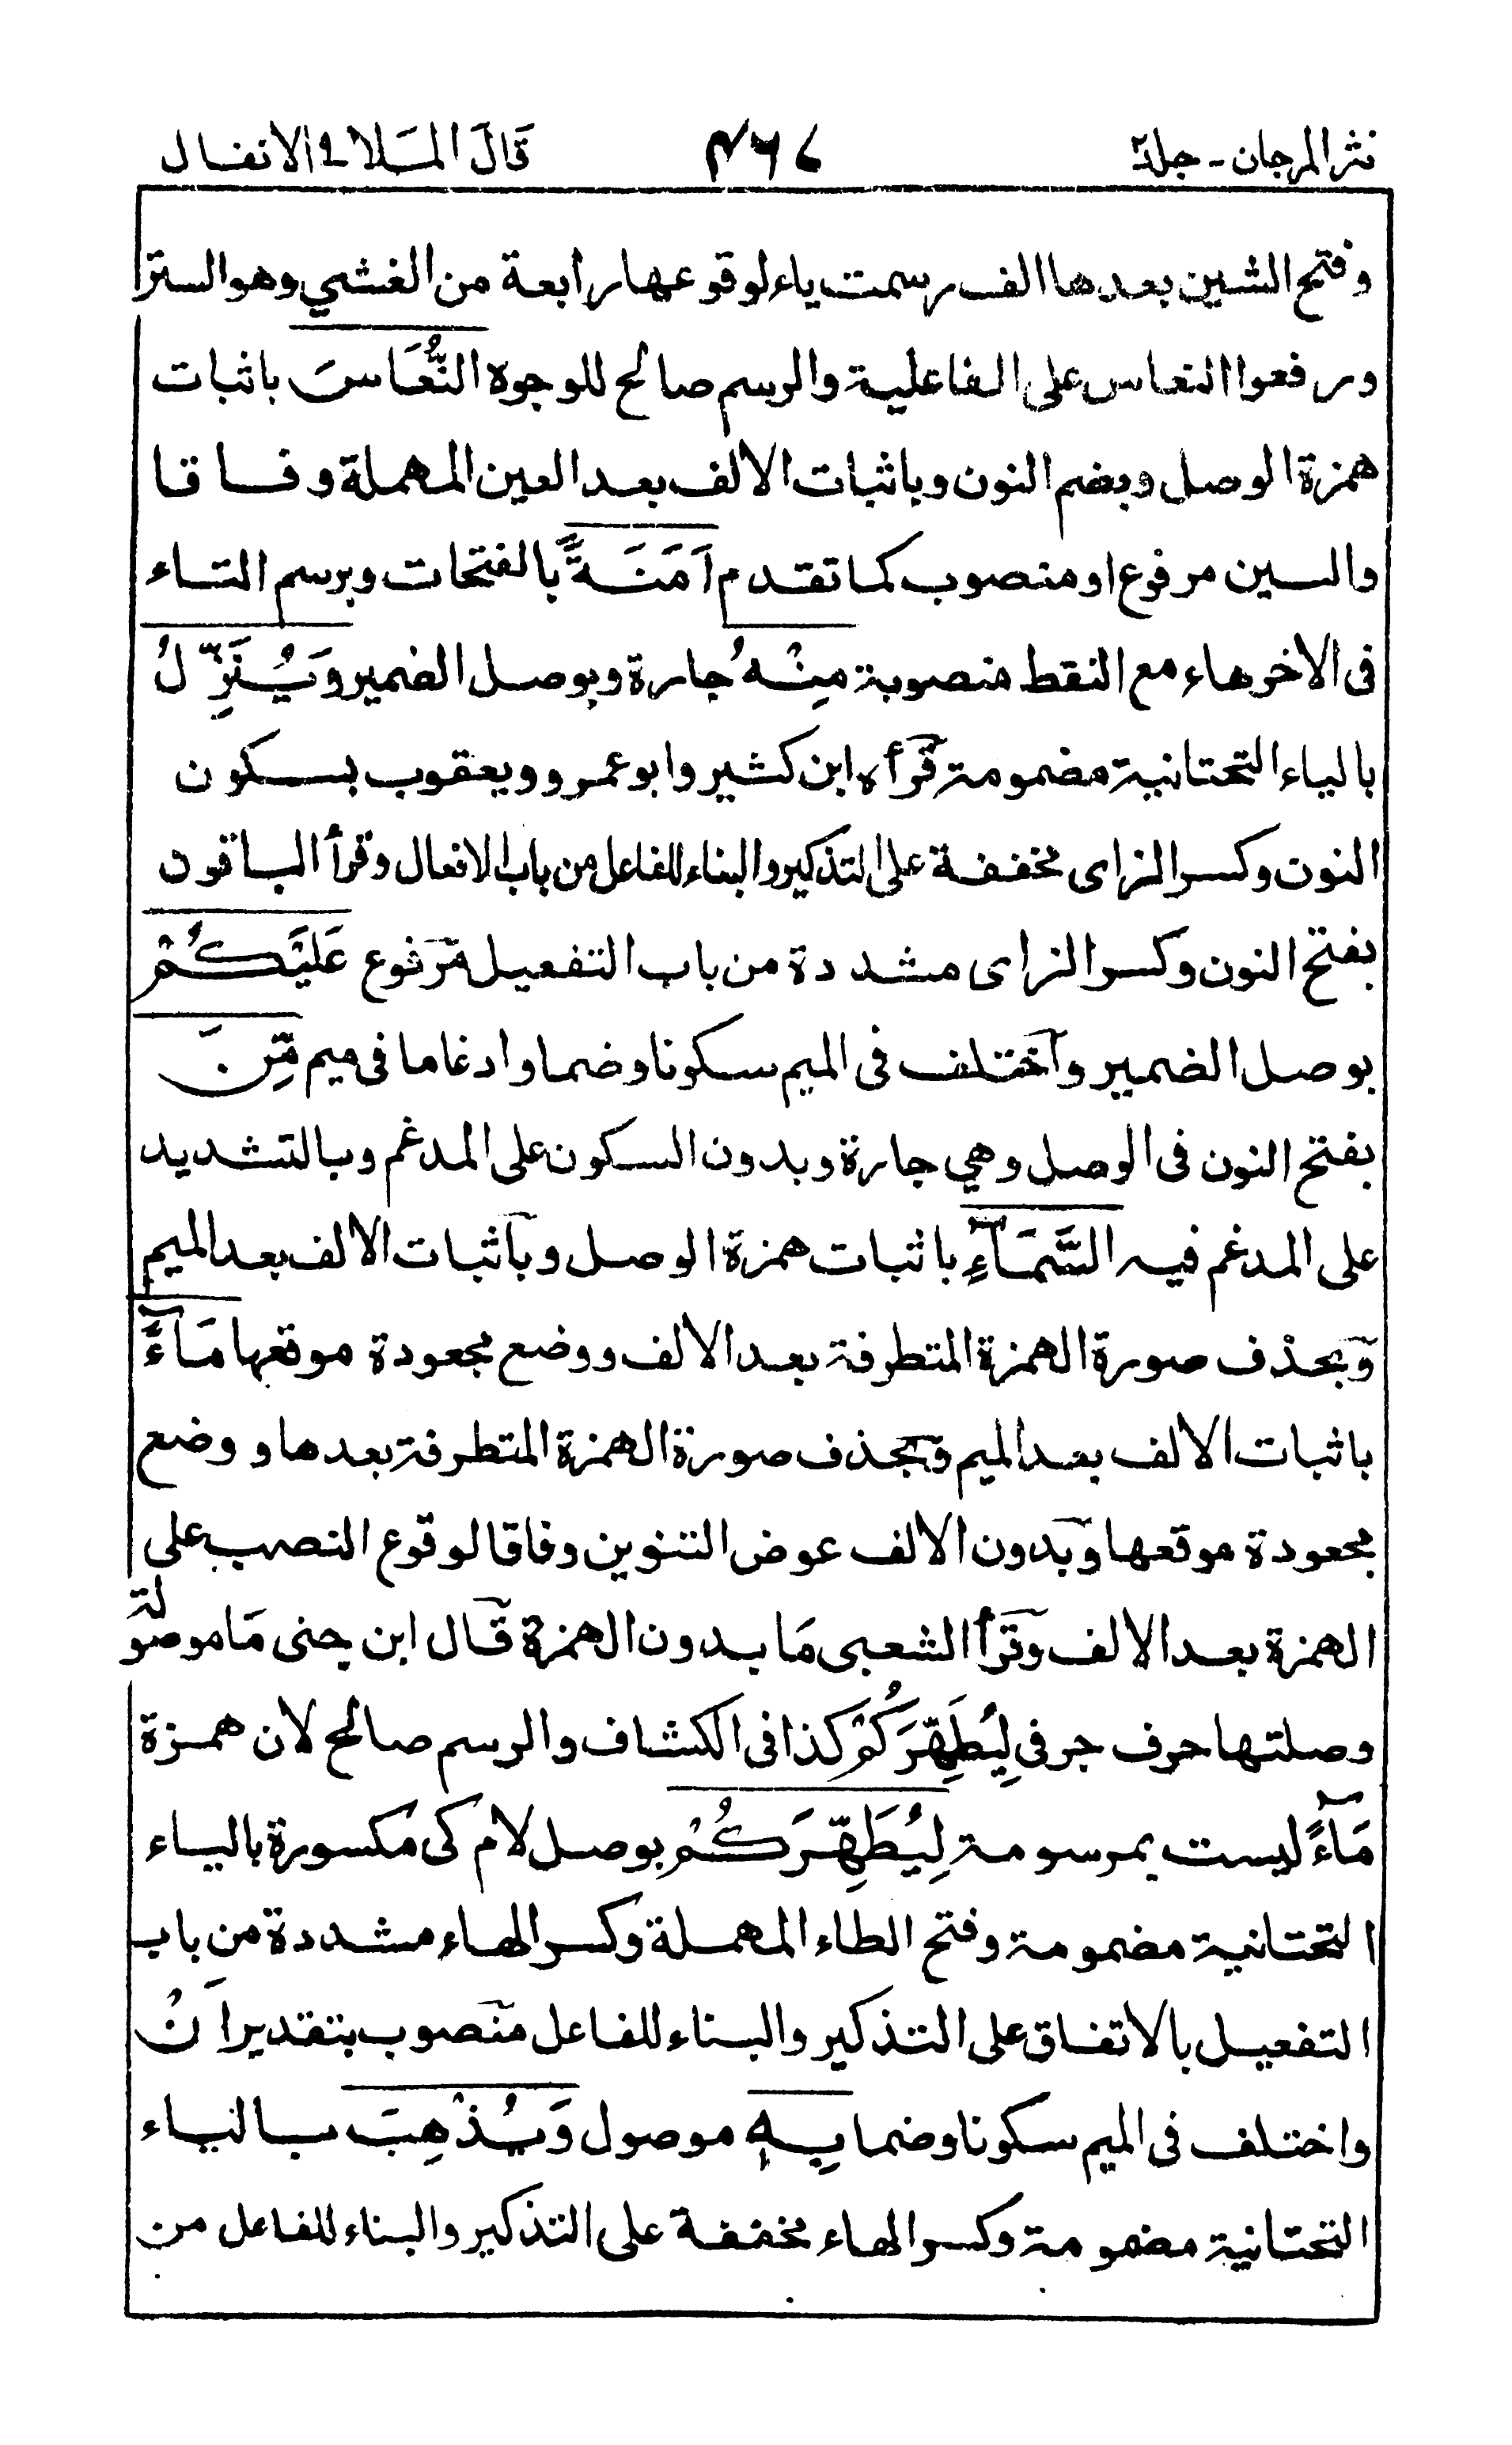 نثر المرجان - جلد٢ ٤٦٧ قَالَ الْمَلَا ٩ الانفال
وفتح الشين بعدها الف رسمت ياء لوقوعها رابعة من الغشي وهو الستر
ورفعوا النعاس على الفاعلية والرسم صالح للوجوه النُّعَاسَ باثبات
همزة الوصل وبضم النون وباثبات الالف بعد العين المهملة وفاقا
والسين مرفوع او منصوب كما تقدم اَمَنَةً بالفتحات وبرسم التاء
فى الاخر هاء مع النقط منصوبة مِنْهُ جارة وبوصل الضمير وَيُنَزِّلُ
بالياء التحتانية مضمومة قرأه ابن كثير وابو عمرو ويعقوب بسكون
النون وكسر الزاى مخففة على التذكير والبناء للفاعل من باب الافعال وقرأ الباقون
بفتح النون وكسر الزاى مشددة من باب التفعيل مرفوع عَلَيْكُمْ
بوصل الضمير واختلف فى الميم سكونا وضما وادغاما فى ميم مِّنَ
بفتح النون فى الوصل وهي جارة وبدون السكون على المدغم وبالتشديد
على المدغم فيه السَّمَآءِ باثبات همزة الوصل وباثبات الالف بعد الميم
وبحذف صورة الهمزة المتطرفة بعد الالف ووضع مجعودة موقعها مَآءً
باثبات الالف بعد الميم وبحذف صورة الهمزة المتطرفة بعدها ووضع
مجعودة موقعها وبدون الالف عوض التنوين وفاقا لوقوع النصب على
الهمزة بعد الالف وقرأ الشعبى مَا بدون الهمزة قال ابن جنى مَا موصولة
وصلتها حرف جر فى لِيُطَهِّرَكُمْ كذا فى الكشاف والرسم صالح لان همزة
مَآءً ليست بمرسومة لِيُطَهِّرَكُمْ بوصل لام كى مكسورة بالياء
التحتانية مضمومة وفتح الطاء المهملة وكسر الهاء مشددة من باب
التفعيل بالاتفاق على التذكير والبناء للفاعل منصوب بتقدير اَنْ
واختلف فى الميم سكونا وضما بِهٖ موصول وَيُذْهِبَ بالياء
التحتانية مضمومة وكسر الهاء مخففة على التذكير والبناء للفاعل من